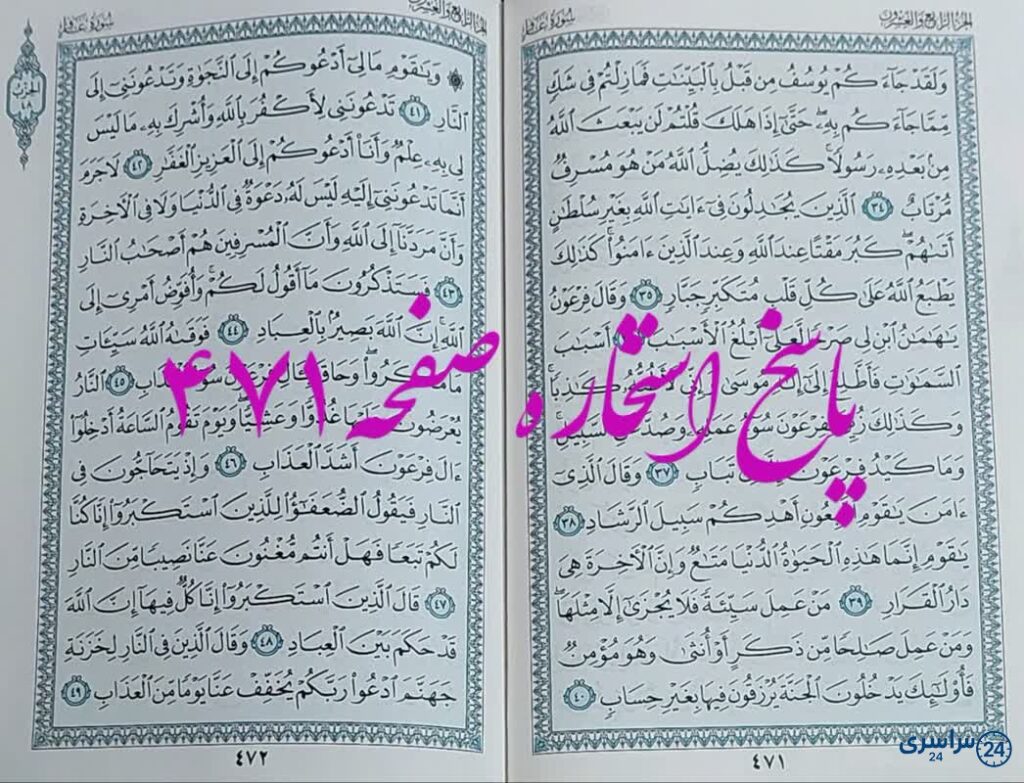 الجزء الرابع والعشرون
سورة غافر
وَلَقَدْ جَآءَكُمْ يُوسُفُ مِن قَبْلُ بِٱلْبَيِّنَٰتِ فَمَا زِلْتُمْ فِى شَكٍّ
مِّمَّا جَآءَكُم بِهِۦ حَتَّىٰٓ إِذَا هَلَكَ قُلْتُمْ لَن يَبْعَثَ ٱللَّهُ
مِنۢ بَعْدِهِۦ رَسُولًا كَذَٰلِكَ يُضِلُّ ٱللَّهُ مَنْ هُوَ مُسْرِفٌ
مُّرْتَابٌ ٣٤ ٱلَّذِينَ يُجَٰدِلُونَ فِىٓ ءَايَٰتِ ٱللَّهِ بِغَيْرِ سُلْطَٰنٍ
أَتَىٰهُمْ كَبُرَ مَقْتًا عِندَ ٱللَّهِ وَعِندَ ٱلَّذِينَ ءَامَنُوا۟ كَذَٰلِكَ
يَطْبَعُ ٱللَّهُ عَلَىٰ كُلِّ قَلْبِ مُتَكَبِّرٍ جَبَّارٍ ٣٥ وَقَالَ فِرْعَوْنُ
يَٰهَٰمَٰنُ ٱبْنِ لِى صَرْحًا لَّعَلِّىٓ أَبْلُغُ ٱلْأَسْبَٰبَ أَسْبَٰبَ
ٱلسَّمَٰوَٰتِ فَأَطَّلِعَ إِلَىٰٓ إِلَٰهِ مُوسَىٰ وَإِنِّى لَأَظُنُّهُۥ كَٰذِبًا
وَكَذَٰلِكَ زُيِّنَ لِفِرْعَوْنَ سُوٓءُ عَمَلِهِۦ وَصُدَّ عَنِ ٱلسَّبِيلِ
وَمَا كَيْدُ فِرْعَوْنَ إِلَّا فِى تَبَابٍ ٣٧ وَقَالَ ٱلَّذِىٓ
ءَامَنَ يَٰقَوْمِ ٱتَّبِعُونِ أَهْدِكُمْ سَبِيلَ ٱلرَّشَادِ ٣٨
يَٰقَوْمِ إِنَّمَا هَٰذِهِ ٱلْحَيَوٰةُ ٱلدُّنْيَا مَتَٰعٌ وَإِنَّ ٱلْءَاخِرَةَ هِىَ
دَارُ ٱلْقَرَارِ ٣٩ مَنْ عَمِلَ سَيِّئَةً فَلَا يُجْزَىٰٓ إِلَّا مِثْلَهَا
وَمَنْ عَمِلَ صَٰلِحًا مِّن ذَكَرٍ أَوْ أُنثَىٰ وَهُوَ مُؤْمِنٌ
فَأُو۟لَٰٓئِكَ يَدْخُلُونَ ٱلْجَنَّةَ يُرْزَقُونَ فِيهَا بِغَيْرِ حِسَابٍ ٤٠
٤٧١
الجزء الرابع والعشرون
سورة غافر
الحزب ٤٨
وَيَٰقَوْمِ مَا لِىٓ أَدْعُوكُمْ إِلَى ٱلنَّجَوٰةِ وَتَدْعُونَنِىٓ إِلَى
ٱلنَّارِ ٤١ تَدْعُونَنِى لِأَكْفُرَ بِٱللَّهِ وَأُشْرِكَ بِهِۦ مَا لَيْسَ
لِى بِهِۦ عِلْمٌ وَأَنَا۠ أَدْعُوكُمْ إِلَى ٱلْعَزِيزِ ٱلْغَفَّٰرِ ٤٢ لَا جَرَمَ
أَنَّمَا تَدْعُونَنِىٓ إِلَيْهِ لَيْسَ لَهُۥ دَعْوَةٌ فِى ٱلدُّنْيَا وَلَا فِى ٱلْءَاخِرَةِ
وَأَنَّ مَرَدَّنَآ إِلَى ٱللَّهِ وَأَنَّ ٱلْمُسْرِفِينَ هُمْ أَصْحَٰبُ ٱلنَّارِ
٤٣ فَسَتَذْكُرُونَ مَآ أَقُولُ لَكُمْ وَأُفَوِّضُ أَمْرِىٓ إِلَى
ٱللَّهِ إِنَّ ٱللَّهَ بَصِيرٌۢ بِٱلْعِبَادِ ٤٤ فَوَقَىٰهُ ٱللَّهُ سَيِّـَٔاتِ
مَا مَكَرُوا۟ وَحَاقَ بِـَٔالِ فِرْعَوْنَ سُوٓءُ ٱلْعَذَابِ ٤٥ ٱلنَّارُ
يُعْرَضُونَ عَلَيْهَا غُدُوًّا وَعَشِيًّا وَيَوْمَ تَقُومُ ٱلسَّاعَةُ أَدْخِلُوٓا۟
ءَالَ فِرْعَوْنَ أَشَدَّ ٱلْعَذَابِ ٤٦ وَإِذْ يَتَحَآجُّونَ فِى
ٱلنَّارِ فَيَقُولُ ٱلضُّعَفَٰٓؤُا۟ لِلَّذِينَ ٱسْتَكْبَرُوٓا۟ إِنَّا كُنَّا
لَكُمْ تَبَعًا فَهَلْ أَنتُم مُّغْنُونَ عَنَّا نَصِيبًا مِّنَ ٱلنَّارِ
٤٧ قَالَ ٱلَّذِينَ ٱسْتَكْبَرُوٓا۟ إِنَّا كُلٌّ فِيهَآ إِنَّ ٱللَّهَ
قَدْ حَكَمَ بَيْنَ ٱلْعِبَادِ ٤٨ وَقَالَ ٱلَّذِينَ فِى ٱلنَّارِ لِخَزَنَةِ
جَهَنَّمَ ٱدْعُوا۟ رَبَّكُمْ يُخَفِّفْ عَنَّا يَوْمًا مِّنَ ٱلْعَذَابِ ٤٩
٤٧٢
پاسخ استخاره صفحه ۴۷۱
سراسری 24
24